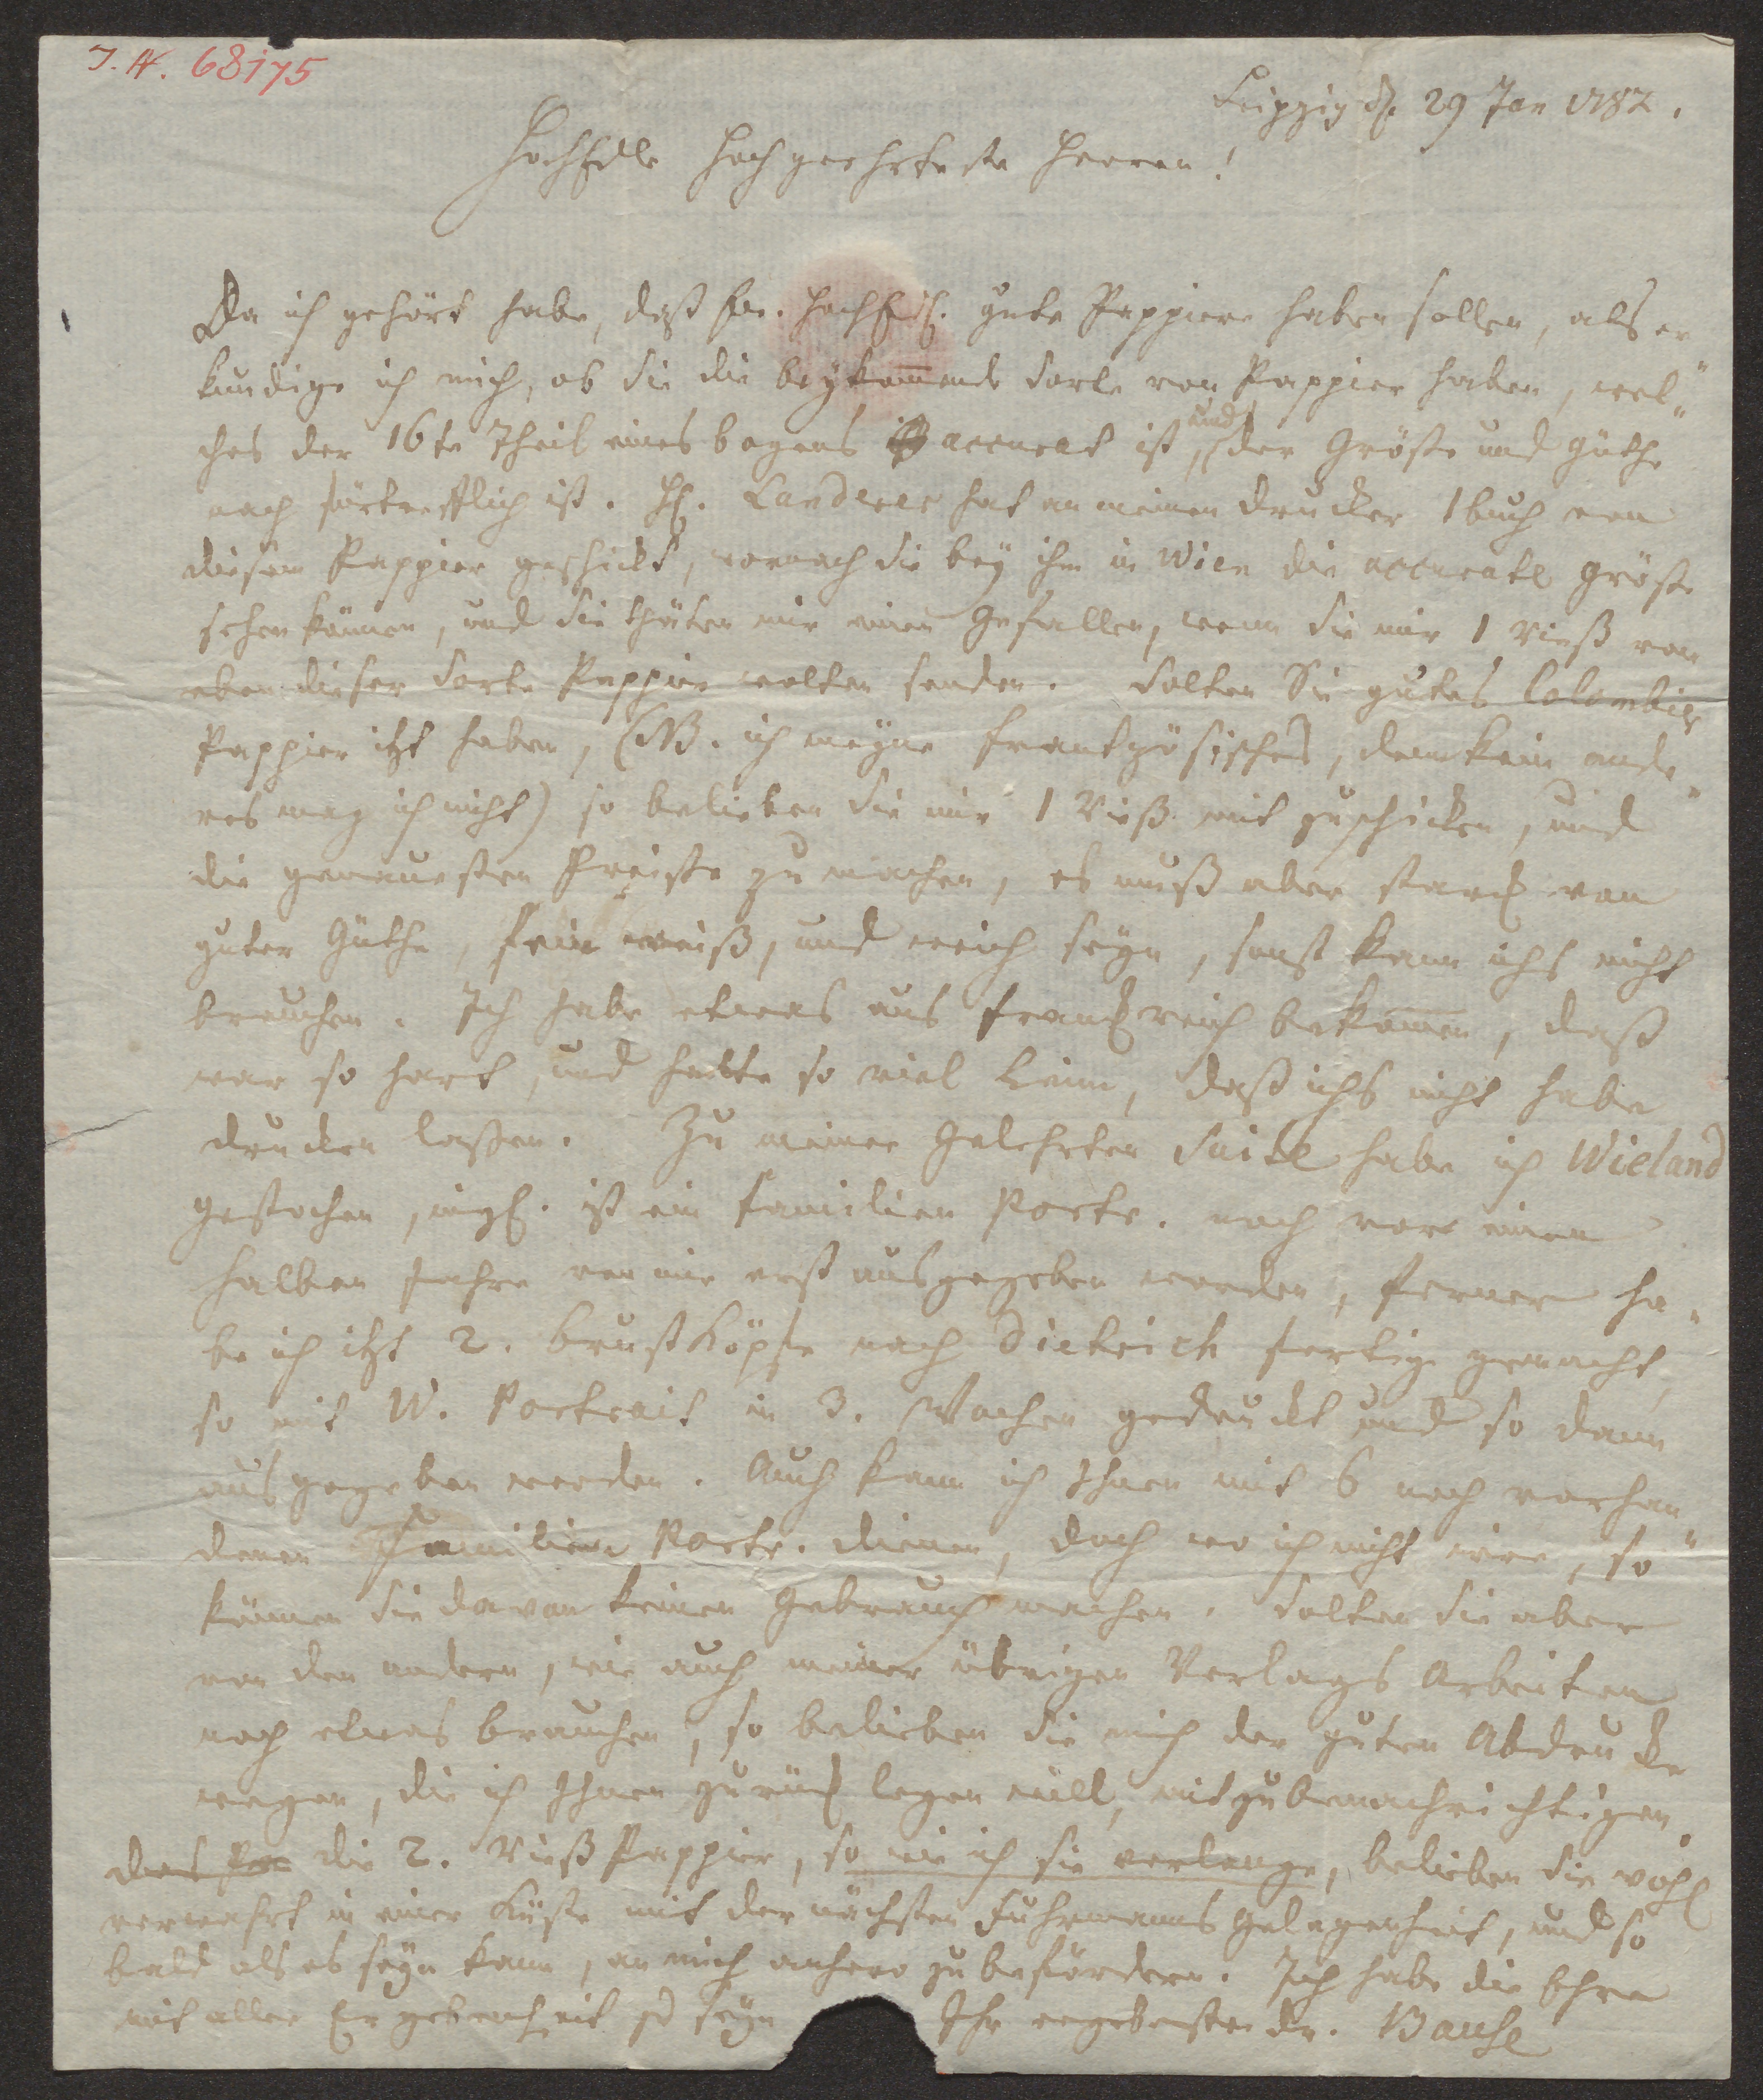 J. N. 68175
Leipzig d. 29 Jan 1782.
HochEdle Hochgeehrteste Herren!
Da ich gehört habe, daß Ew. HochEdl. gute Pappiere haben sollen, als er„
kundige ich mich, ob Sie die beykom̅ende Sorte von Pappier haben, wel„
ches der 16te Theil eines bogens accurat ist, und der Größe und Güthe
nach fürtrefflich ist. H. Landerer hat an meinen Drucker 1 buch von
diesem Pappier geschickt, wornach Sie bey ihm in Wien die accurate Größe
sehen können, und Sie thäten mir einen Gefallen, wenn Sie mir 1 Rieß von
eben dieser Sorte Pappier wolten senden. Solten Sie gutes Colombier
Pappier itzt haben, (NB. ich meyne frantzösisches, denn kein ande„
res mag ich nicht) so belieben Sie mir 1 Rieß mit zuschicken, und
die genauesten Preiße zu machen, es muß aber starck von
guter Güthe, fein weiß, und weich seyn, sonst kann ichs nicht
brauchen. Ich habe etwas aus Franckreich bekom̅en, daß
war so hart, und hatte so viel Leim, daß ichs nicht habe
drucken laßen. Zu meiner Gelehrten Suite habe ich Wieland
gestochen, ingl. ist ein Familien Portr. noch vor einem
halben Jahre von mir erst ausgegeben worden, ferner ha„
be ich itzt 2. brustköpfe nach Dietrich fertig gemacht,
so mit W. Portrait in 3. Wochen gedruckt und so dann
ausgegeben werden. Auch kann ich Ihnen mit 6 noch vorhan„
denen Familien Portr. dienen, doch wo ich nicht irre, so
können Sie davon keinen Gebrauch machen. Solten Sie aber
von den andern, wie auch meiner übrigen Verlags Arbeiten
noch etwas brauchen, so belieben Sie mich der guten Abdrucke
wegen, die ich Ihnen zurück legen will, mit zu benachrichtigen.
die 2. Rieß Pappier, so wie ich sie verlange, belieben Sie wohl
verwahrt in einer Kiste mit der nächsten Fuhrmanns Gelegenheit, und so
bald als es seyn kann, an mich anhero zu befördern. Ich habe die Ehre
mit aller Ergebenheit zu seyn Ihr ergebenster Dr. Bause